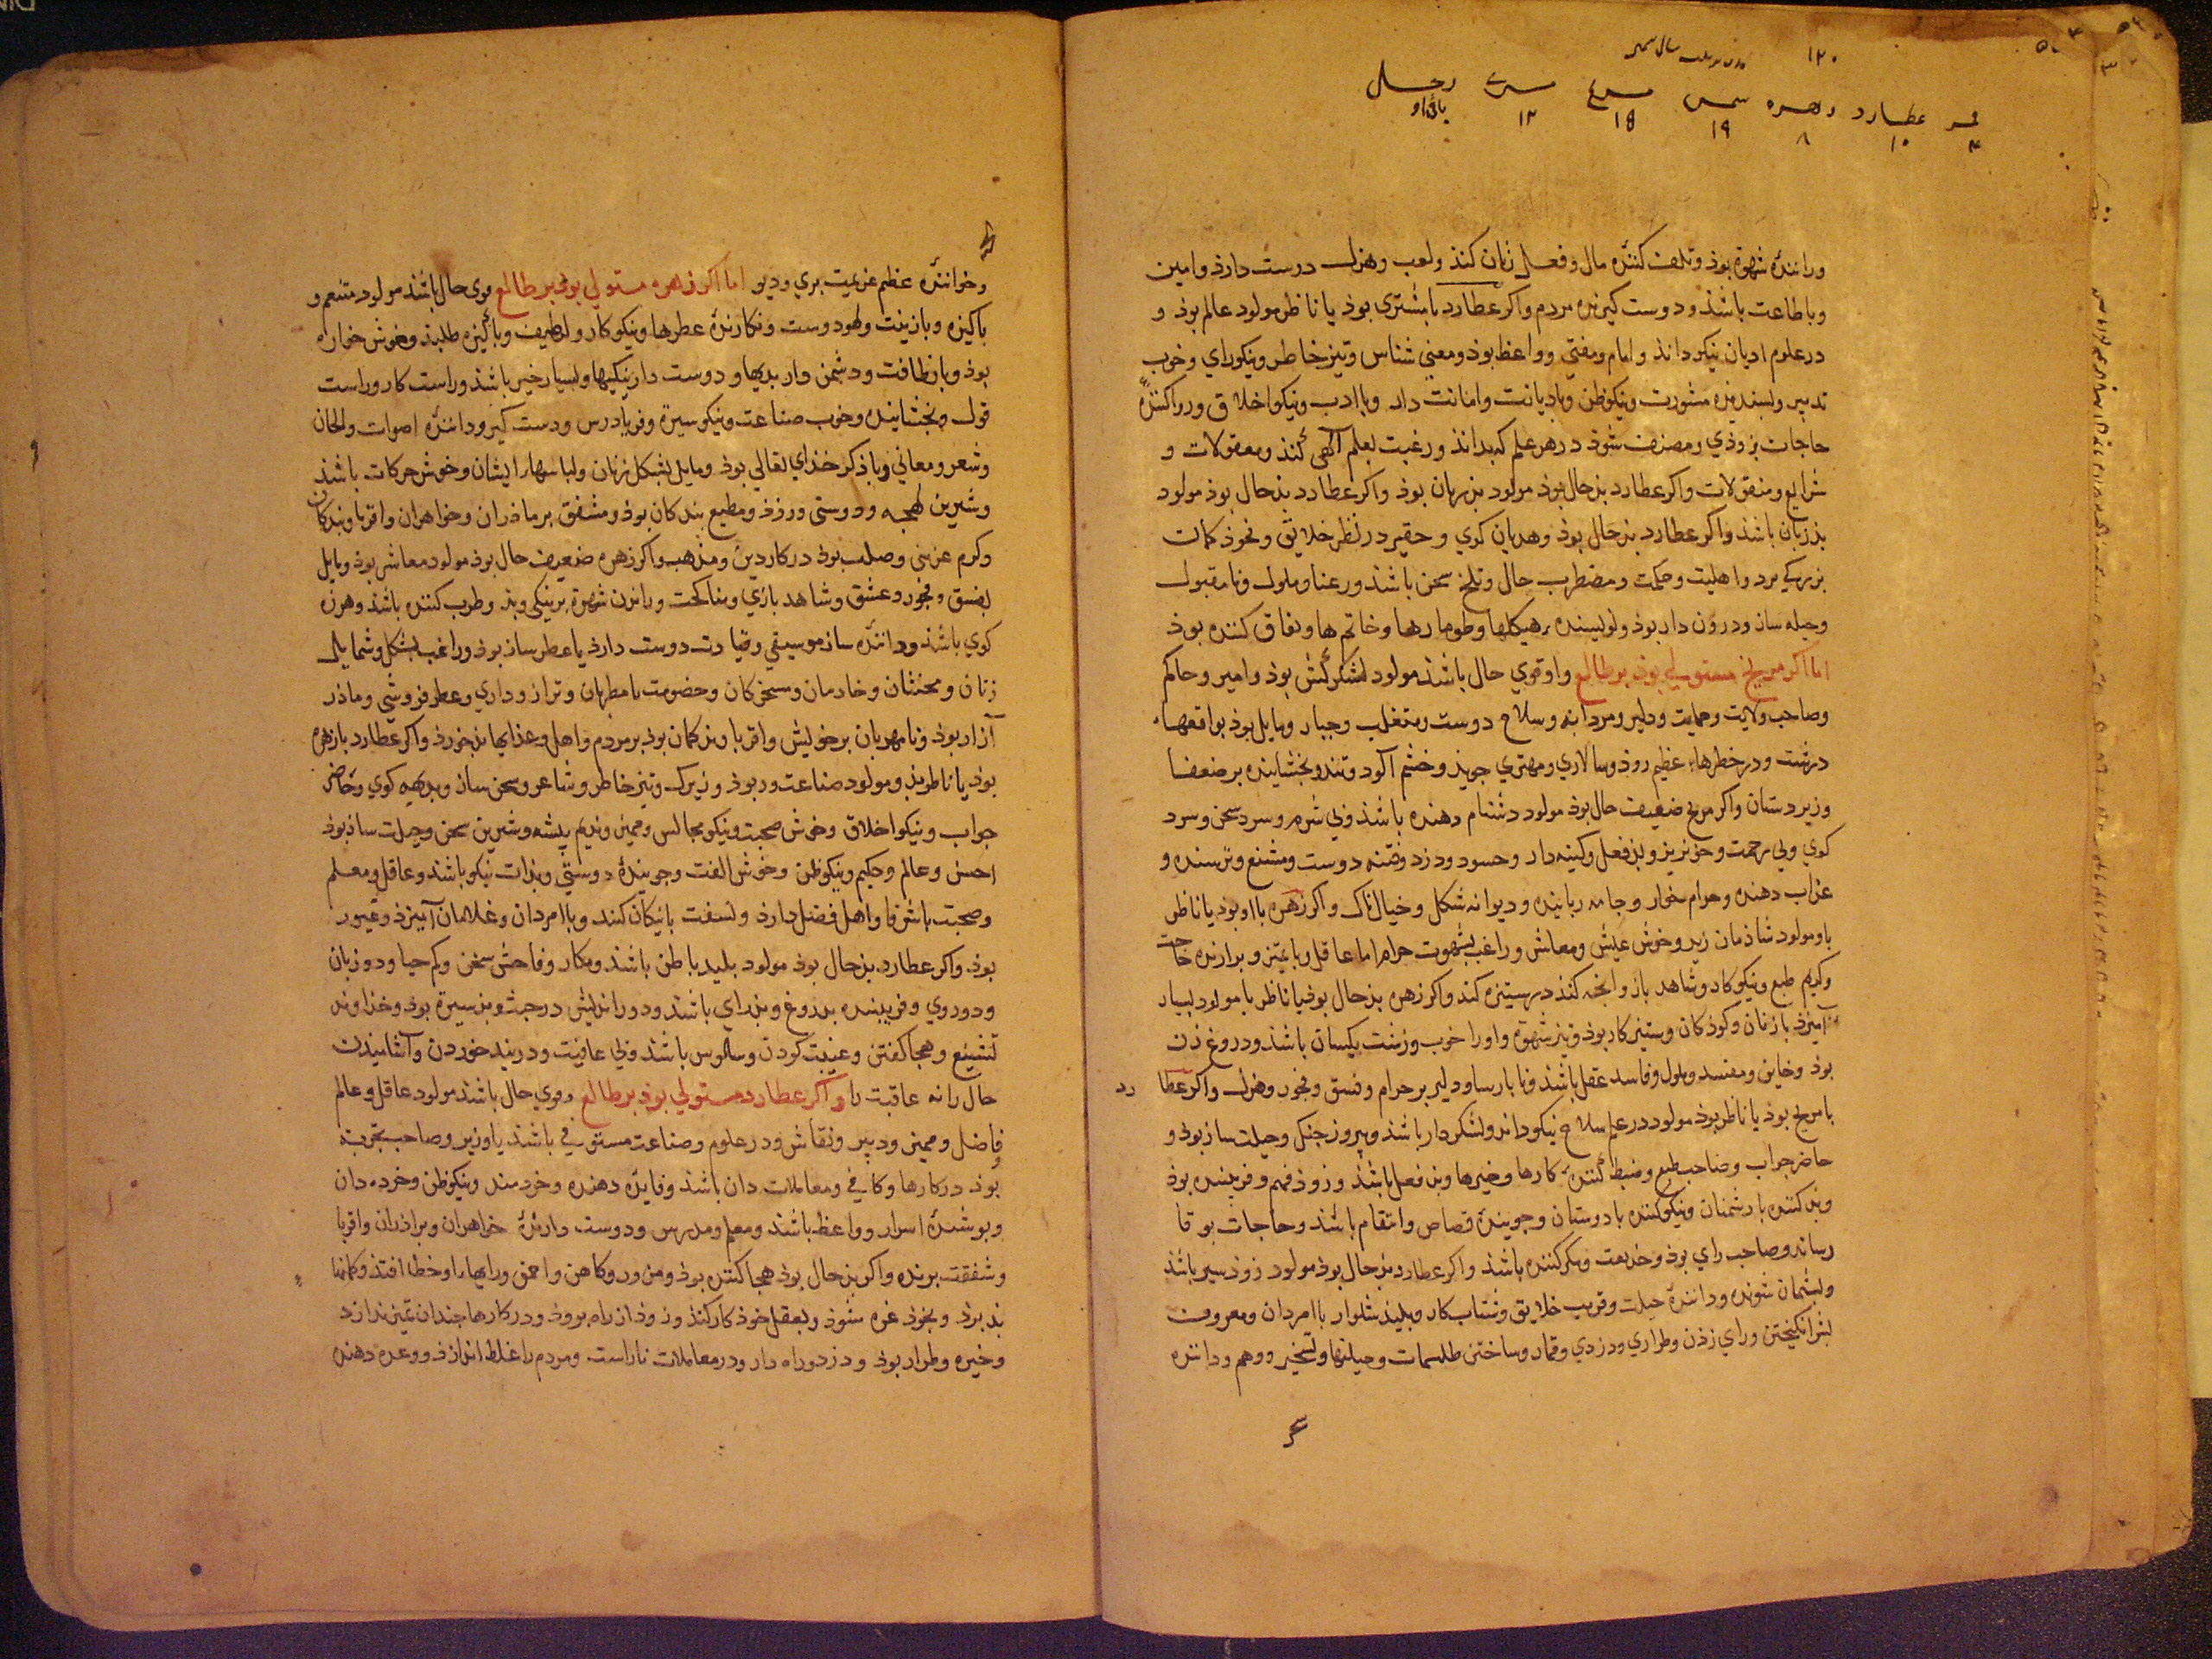 قمر عطارد زهره شمس مریخ مشتری زحل
۴ ۱۰ ۸ ۱۹ ۱۵ ۱۲ باقی او
وراننده شهوة بوذ وتلف کننده مال وفعل زنان کند ولعب وهزل درست دارذ وامین
وباطاعت باشذ ودوست کیرنده مردم واکر عطارد بامشتری بوذ یا ناظر مولود عالم بوذ و
در علوم ادیان نیکو دانذ وامام ومفتی وواعظ بوذ ومعنی شناس وتیز خاطر ونیکو رای وخوب
تدبیر وپسندیده مشورت ونیکوظن وبادیانت وامانت دار وباادب ونیکو اخلاق ورواکننده
حاجات بزوذی ومصنف شوذ در هر علم که بدانذ ورغبت بعلم آلهی کند ومعقولات و
شرایع ومنقولات واکر عطارد بذحال بوذ مولود بذ زبان بوذ واکر عطارد بذحال بوذ مولود
بذ زبان باشذ واکر عطارد بذحال بوذ وهذیان کوی وحقیر در نظر خلایق ونحوذ کلمات
بزرکی برد واهلیت وحکمت ومضطرب حال وتلخ سخن باشذ ورعنا وملول ونامقبول
وحیله ساز ودرون دار بوذ ونویسنده هیکلها وطومارها وخاتم ها ونفاق کننده بوذ
اما اکر مریخ مستولی بوذ بر طالع واو قوی حال باشذ مولود لشکرکش بوذ وامیر وحاکم
وصاحب ولایت وحمایت ودلیر ومردانه وسلاح دوست ومتغلب وجبار ومایل بوذ بواقعهاء
درشت ودر خطرهاء عظیم روذ وسالاری ومهتری جویذ وخشم آلود وتند وبخشاینده بر ضعفا
وزیردستان واکر مریخ ضعیف حال بوذ مولود دشنام دهنده باشذ وبی شرم وسرد سخن وسرد
کوی وبی رحمت وخونریز وبذفعل وکینه دار وحسود ودزد وفتنه دوست ومشنع وترسنده و
عذاب دهنده وحرام خوار وجامه رباینده ودیوانه شکل وخیال ناک واکر زهره بااو بوذ یا ناظر
باو مولود شاذمان زید وخوش عیش ومعاش وراغب بشهوت حرام اما عاقل وبا تمیز وبرارنده حاجت
وکریم طبع ونیکوکار وشاهد باز وانچه کند درستیزه کند واکر زهره بذحال بوذ یا ناظر با مولود بسیار
آمیزذ بازنان وکوذکان وستیزکار بوذ وتیز شهوة واورا خوب وزشت یکسان باشذ ودروغ زن
بوذ وخاین ومفسد وملول وفاسد عقل باشذ وناپارسا ودلیر بر حرام وفسق وفجور وهزل واکر عطارد
بامریخ بوذ یا ناظر بوذ مولود در علم سلاح نیکو داند ولشکردار باشذ وپیروز جنک وحیلت ساز بوذ و
حاضر جواب وصاحب طبع وضبط کننده کارها وخیرها وبذ فعل باشذ وزوذ فهم وفریبنده بوذ
وبذ کننده با دشمنان ونیکوکننده با دوستان وجوینده قصاص وانتقام باشذ وحاجات بوقا
رساند وصاحب رای بوذ وخدیعت ومکر کننده باشذ واکر عطارد بذحال بوذ مولود زوذ سیر باشذ
وپشیمان شونده وداننده حیلت وفریب خلایق وشتاب کار وپلید شلوار باامردان ومعروف
بشر انکیختن ورای زذن وطراری ودزدی وقمار وساختن طلسمات وحیلتها وتسخیر ووهم وداننده
سحر
وخواننده عظم عزیمت پری ودیو اما اکر زهره مستولی بوذ بر طالع قوی حال باشذ مولود متنعم و
پاکیزه وبازینت ولهو دوست ونکارنده عطرها ونیکوکار ولطیف وپاکیزه طلبذ وخوش خواره
بوذ وبا نظافت ودشمن دار بدیها ودوست دار نیکیها وبسیار خیر باشذ وراست کار وراست
قول وبخشاینده وخوب صناعت ونیکو سیرة وفریاذرس ودست کیر وداننده اصوات والحان
وشعر ومعانی وباذکر خدای تعالی بوذ ومایل بشکل زنان ولباسهاء ایشان وخوش حرکات باشذ
وشیرین لهجه ودوستی ورزذ ومطیع بندکان بوذ ومشفق بر ماذران وخواهران واقربا وبندکان
وکرم عزیزی وصلب بوذ در کار دین ومذهب واکر زهره ضعیف حال بوذ مولود معاشر بوذ ومایل
بفسق وفجور وعشق وشاهد بازی ومناکحت وراندن شهوة بر نیکی وبذ وطرب کننده باشذ وهرزه
کوی باشذ وداننده ساز موسیقی وقیادت دوست دارذ یا عطر ساز بوذ وراغب بشکل وشمایل
زنان ومخنثان وخادمان وسخرکان وخصومت با مطربان وترازوداری وعطرفروشی وماذر
آزار بوذ ونامهربان بر خویش واقربا وبذکمان بوذ بر مردم واهل وغذاها بذ خورذ واکر عطارد بازهره
بوذ یا ناظر بوذ مولود صناعت ور بوذ وزیرک وتیز خاطر وشاعر وسخن ساز وبدیهه کوی وحاضر
جواب ونیکو اخلاق وخوش صحبت ونیکو مجالس وممیز وندیم پیشه وشیرین سخن وحیلت ساز بوذ
احسن وعالم وحکیم ونیکوظن وخوش الفت وجوینده دوستی وبذات نیکو باشذ وعاقل ومعلم
وصحبت باشرفا واهل فضل دارذ ونسفت با نیکان کند وبا امردان وغلامان آمیزذ وغیور
بوذ واکر عطارد بذحال بوذ مولود پلید باطن باشذ ومکار وفاحش سخن وکم حیا ودو زبان
ودو روی وفریبنده بدروغ وبذ رای باشذ ودوراندیش درجت وبذ سیرة بوذ وخذاوند
تشنیع وهجا کفتن وغیبت کردن وسالوس باشذ وبی عاقبت ودر بند خوردن وآشامیدن
حال را نه عاقبت را واکر عطارد مستولی بوذ بر طالع وقوی حال باشذ مولود عاقل وعالم
وفاضل وممیز ودبیر ونقاش ودر علوم وصناعت مستوفی باشذ یا وزیر وصاحب تجربه
بوذ در کارها وکافی ومعاملات دان باشذ وفایده دهنده وخردمند ونیکوظن وخرده دان
وپوشنده اسرار وواعظ باشذ ومعلم ومدرس ودوست دارنده خواهران وبراذران واقربا
وشفقت برنده واکر بذحال بوذ هجا کننده بوذ ومزور وکاهن واحمق ورایهاء او خطا افتذ وکمانها
بذ برذ وبخوذ غره شوذ وبعقل خوذ کار کنذ وزوذ از راه بروذ ودر کارها چندان تمیز ندارد
وخیره وطرار بوذ ودزد وراه دار ودر معاملات ناراست ومردم را غلط اندازذ ووعده دهنده